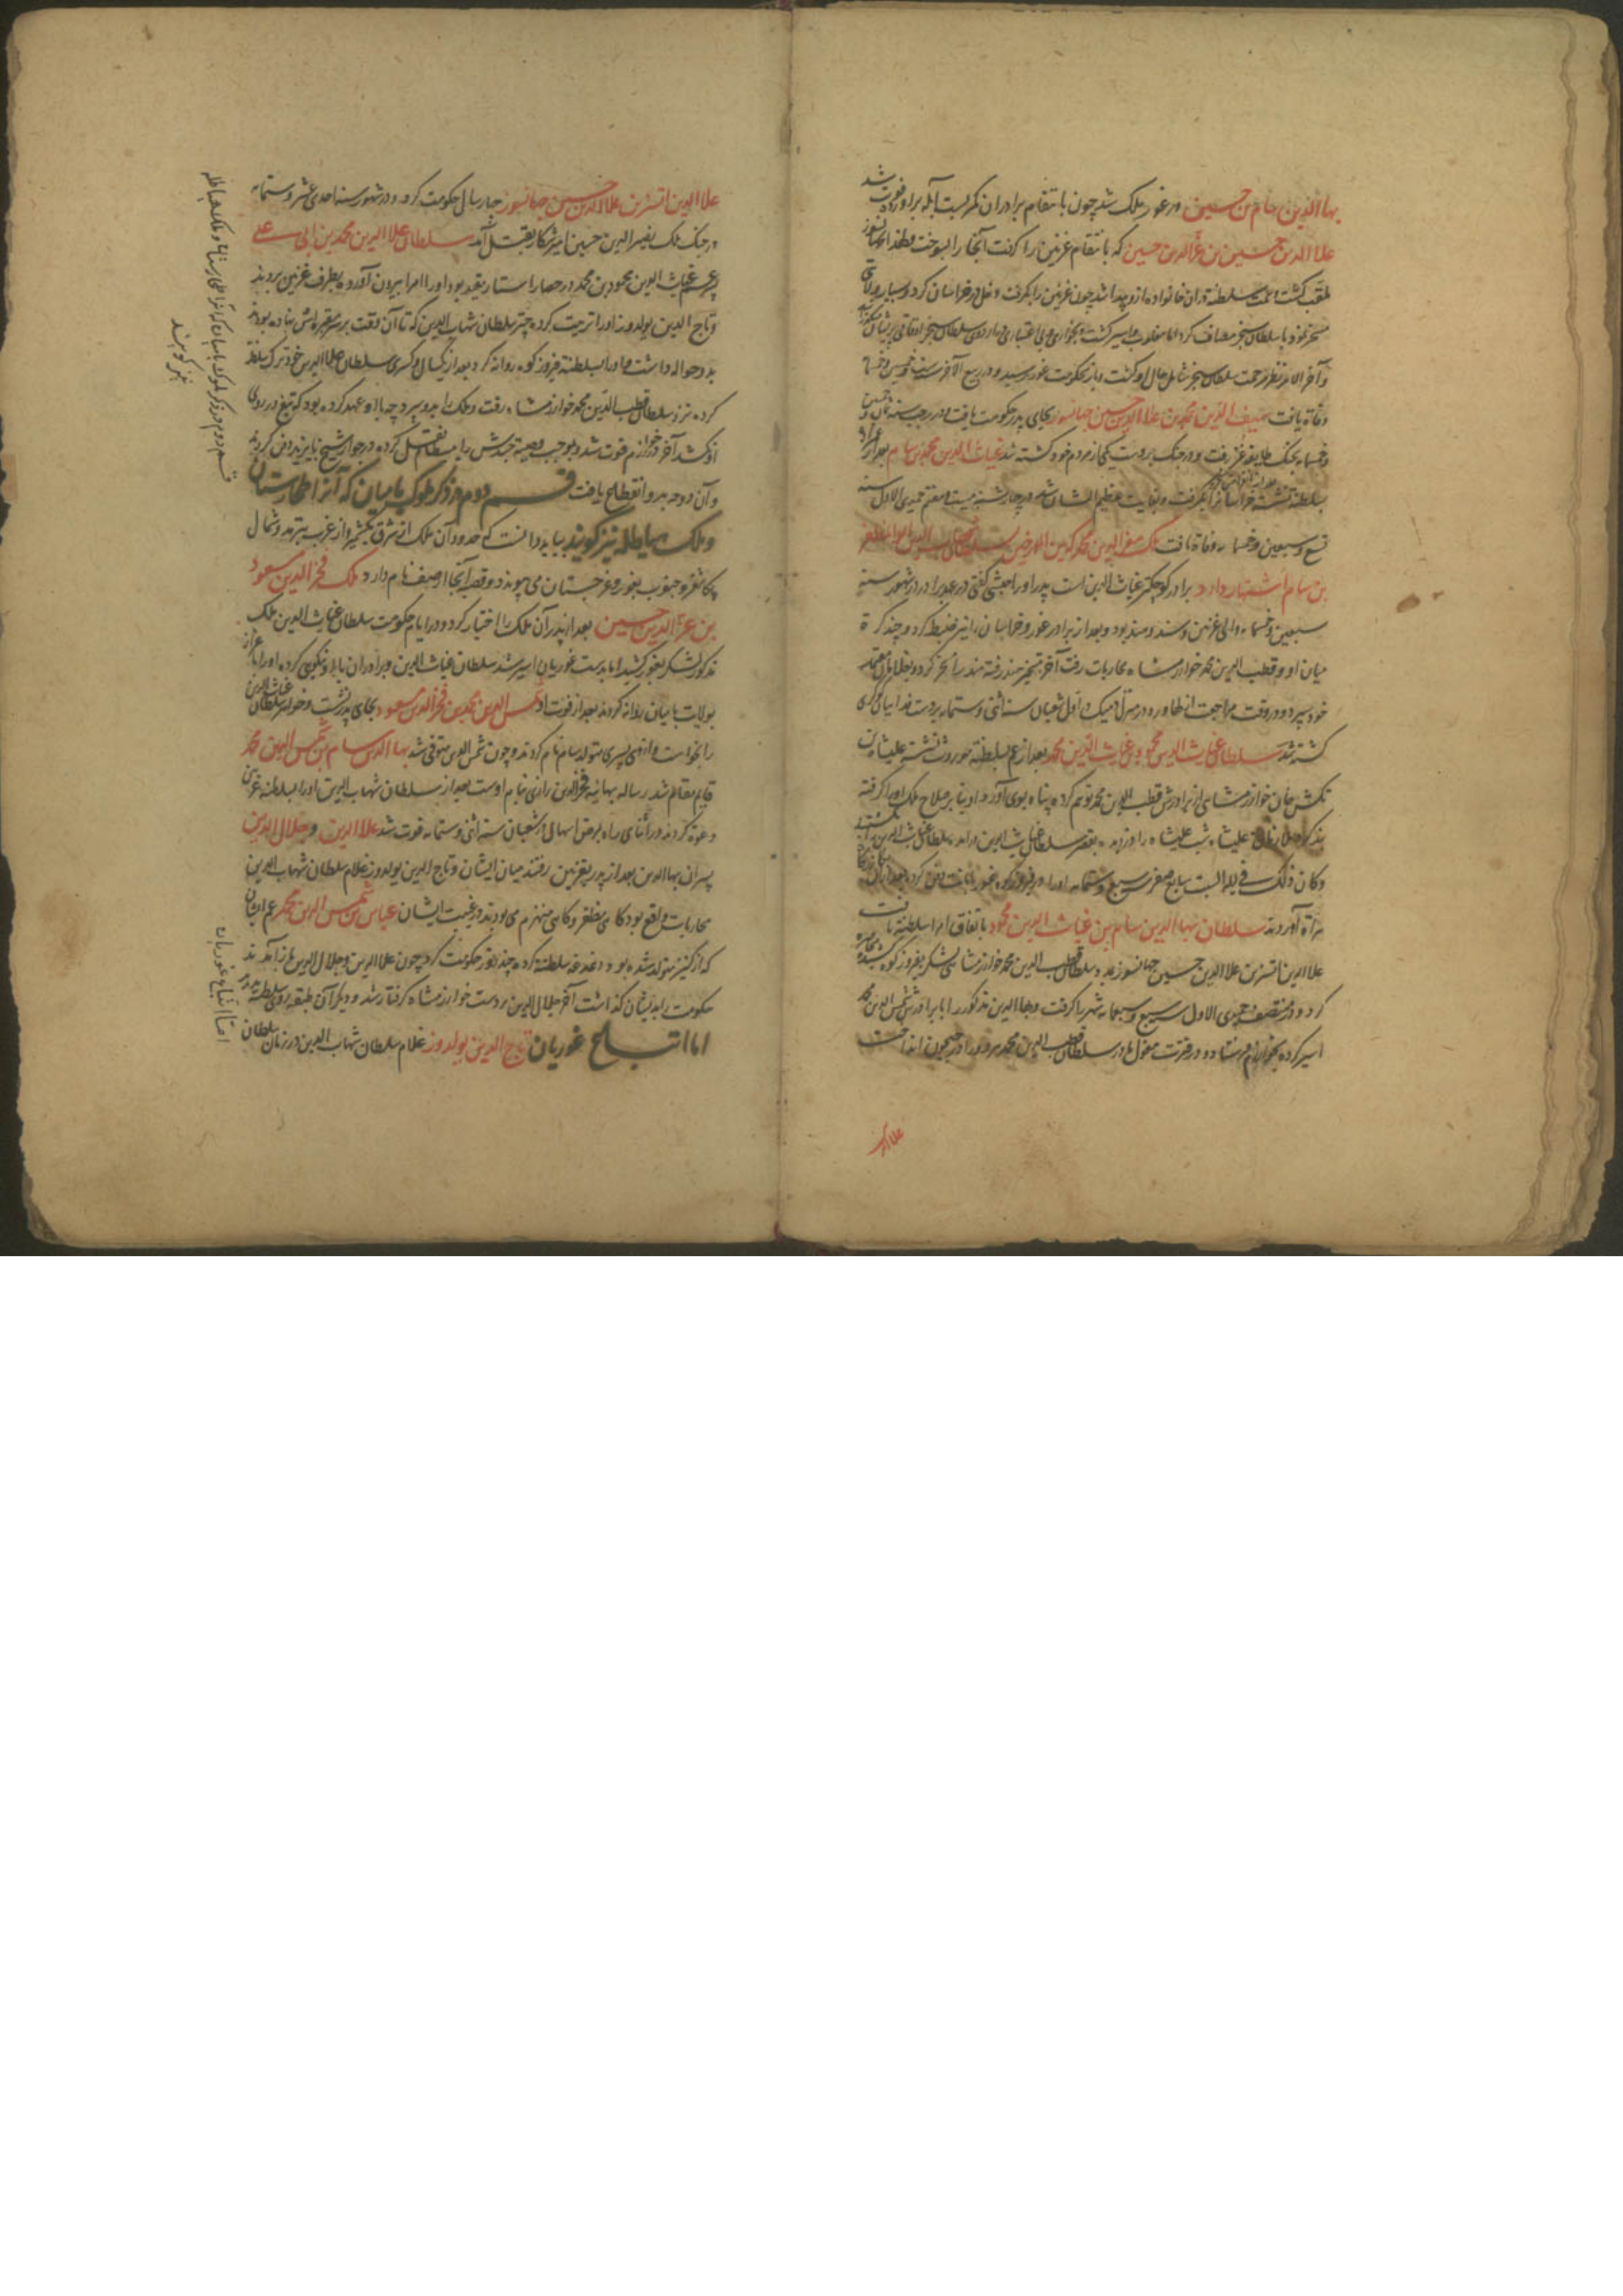 بهاالدین سام بن حسین در غور ملک شد چون بانتقام برادران کمر بست آبله برآورد فوت شد
علاالدین حسین بن عزالدین حسین که بانتقام غزنین را گرفت آنجا را بسوخت و لهذا بجهانسوز
ملقب گشت سلطنة در آن خانواده ازو پیدا شد چون غزنین را بگرفت دخل در خراسان کرد و بسیار ولایتی
مسخر نمود با سلطان سنجر مصاف کرد اما مغلوب و اسیر گشت و بخواری و بی اعتباری در اردوی سلطان سنجر اوقاتی
و آخر الامر نظر مرحمت سلطان سنجر شامل حال او گشت و باز بحکومت غور رسید و در ربیع الآخر سنه خمسین و خمسمایه
وفاة یافت سیف الدین محمد بن علاالدین حسین جهانسوز بجای پدر حکومت یافت و در رجب سنه ثمان و خمسین
و خمسمایه بجنگ طایفه غز رفت و در جنگ بر دست یکی از مردم خود کشته شد غیاث الدین محمد بن سام بعد از عمزاده
بسلطنة نشسته خراسانرا بگرفت و بغایت عظیم الشان شد در چهارشنبه بیست و هفتم جمیدی الاول سنه
تسع و سبعین و خمسمایه وفاة یافت ملک معز الدین محمد که بین المورخین سلطان شهاب الدین ابوالمظفر
بن سام اشتهار دارد برادر کوچکتر غیاث الدین است پدر او را حبشی گفتی در عهد برادر در شهور سنه
سبعین و خمسمایه والی غزنین و سند و هند بود و بعد از برادر غور و خراسان را نیز ضبط کرد و چند کرة
میان او و قطب الدین محمد خوارزمشاه محاربات رفت آخر بتسخیر هند رفته هند را مسخر کرد و بغلامان معتمد
خود سپرد و در وقت مراجعت از لهاور در منزل دمیک در اول شعبان سنه اثنی و ستمایه بر دست فداییان
کشته شد سلطان غیاث الدین محمود بن غیاث الدین محمد بعد از عم بسلطنة موروث نشسته علیشاه بن
تکش خان خوارزمشاهی از برادرش قطب الدین محمد توهم کرده پناه بوی آورد او بنا بر صلاح ملک او را گرفته
بند کرد ملازمان علیشاه شب علیشاه را دزدیده بقصر سلطان غیاث الدین در آمده سلطان غیاث الدین را بکشتند
و کان ذلک فی لیلة السبت سابع صفر سنه سبع و ستمایه او را در فیروزکوه غور بامانت دفن کرده بعد از آن
بهراة آوردند سلطان بهاالدین سام بن غیاث الدین محمود باتفاق امرا سلطنة یافت
علاالدین اتسز بن علاالدین حسین جهانسوز بمدد سلطان قطب الدین محمد خوارزمشاهی لشکر بفیروزکوه کشیده محاصره
کرد و در منتصف جمیدی الاول سنه سبع و سبعمایه شهر را گرفت و بهاالدین مذکور را با برادرش شمس الدین محمد
اسیر کرده بخوارزم فرستاد و در فترت مغول مادر سلطان قطب الدین محمد هر دو را در جیحون انداخت
علاالدین
علاالدین اتسز بن علاالدین حسین جهانسوز چهار سال حکومت کرد و در شهور سنه احدی عشر و ستمایه
در جنگ ملک نصیر الدین حسین امیر شکار بقتل آمد سلطان علاالدین محمد بن ابی علی
پسر عم غیاث الدین محمود بن محمد در حصار استار بقید بود او را امرا بیرون آورده بطرف غزنین بردند
و تاج الدین یولدوز او را تربیت کرده چتر سلطان شهاب الدین که تا آن وقت بر سر مقبره اش نهاده بودند
بدو حواله داشت و او را بسلطنة فیروزکوه روانه کرد بعد از یکسال و کسری سلطان علاالدین خود ترک سلطنة
کرده نزد سلطان قطب الدین محمد خوارزمشاه رفت و ملک را بدو سپرد چه با او عهد کرده بود که تیغ در روی
او نکشد آخر در خوارزم فوت شد و بموجب وصیة جسدش را ببسطام نقل کرده در جوار شیخ بایزید دفن کردند
و آن دوحه بدو انقطاع یافت قسم دوم در ذکر ملوک بامیان که آنرا طخارستان
و ملک هیاطله نیز گویند بباید دانست که حدود آن ملک از شرق بکشمیر و از غرب بترمد و شمال
بکاشغر و جنوب بغور و غرجستان می پیوندد و قصبه آنجا اصف نام دارد ملک فخر الدین مسعود
بن عزالدین حسین بعد از پدر آن ملک را اختیار کرد و در ایام حکومت سلطان غیاث الدین ملک
مذکور لشکر بغور کشید اما بدست غوریان اسیر شد سلطان غیاث الدین و برادران با او نیکویی کرده او را باعزاز
بولایت بامیان روانه کردند بعد از فوت او شمس الدین محمد بن فخرالدین مسعود بجای پدر نشست و خواهر سلطان غیاث الدین
را بخواست و ازوی پسری متولد سام نام کردند و چون شمس الدین متوفی شد بهاالدین سام بن شمس الدین محمد
قایم مقام شد رساله بهائیه فخرالدین رازی بنام اوست بعد از سلطان شهاب الدین او را بسلطنة غزنین
دعوة کردند در اثنای راه بمرض اسهال از شعبان سنه اثنی و ستمایه فوت شد علاالدین و جلال الدین
پسران بهاالدین بعد از پدر بغزنین رفتند میان ایشان و تاج الدین یولدوز غلام سلطان شهاب الدین
محاربات واقع بود گاهی مظفر و گاهی منهزم می بودند در غیبت ایشان عباس بن شمس الدین محمد عم ایشان
که از کنیز متولد شده بود دغدغه سلطنة کرده چند روز حکومت کرد چون علاالدین و جلال الدین باز آمدند
حکومت را بدیشان گذاشت آخر جلال الدین بر دست خوارزمشاه گرفتار شد و دیگر آن طبقه روی سلطنة ندید
اما اتباع غوریان تاج الدین یولدوز غلام سلطان شهاب الدین در زمان سلطان
قسم دوم در ذکر ملوک بامیان که آنرا طخارستان و ملک هیاطله
نیز گویند
اما اتباع غوریان